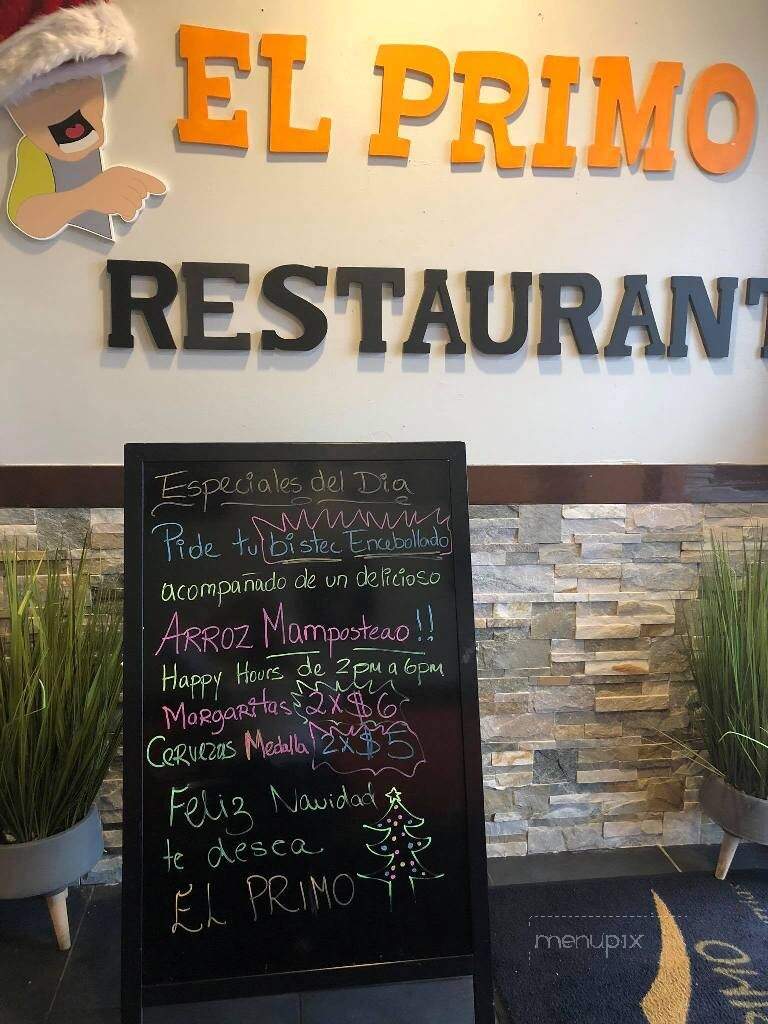 EL PRIMO
RESTAURANT
Especiales del Dia
Pide tu bistec Encebollado
acompañado de un delicioso
ARROZ Mamposteao!!
Happy Hours de 2pm a 6pm
Margaritas 2x$6
Cervezas Medalla 2x$5
Feliz Navidad
te desea
EL PRIMO
menupix